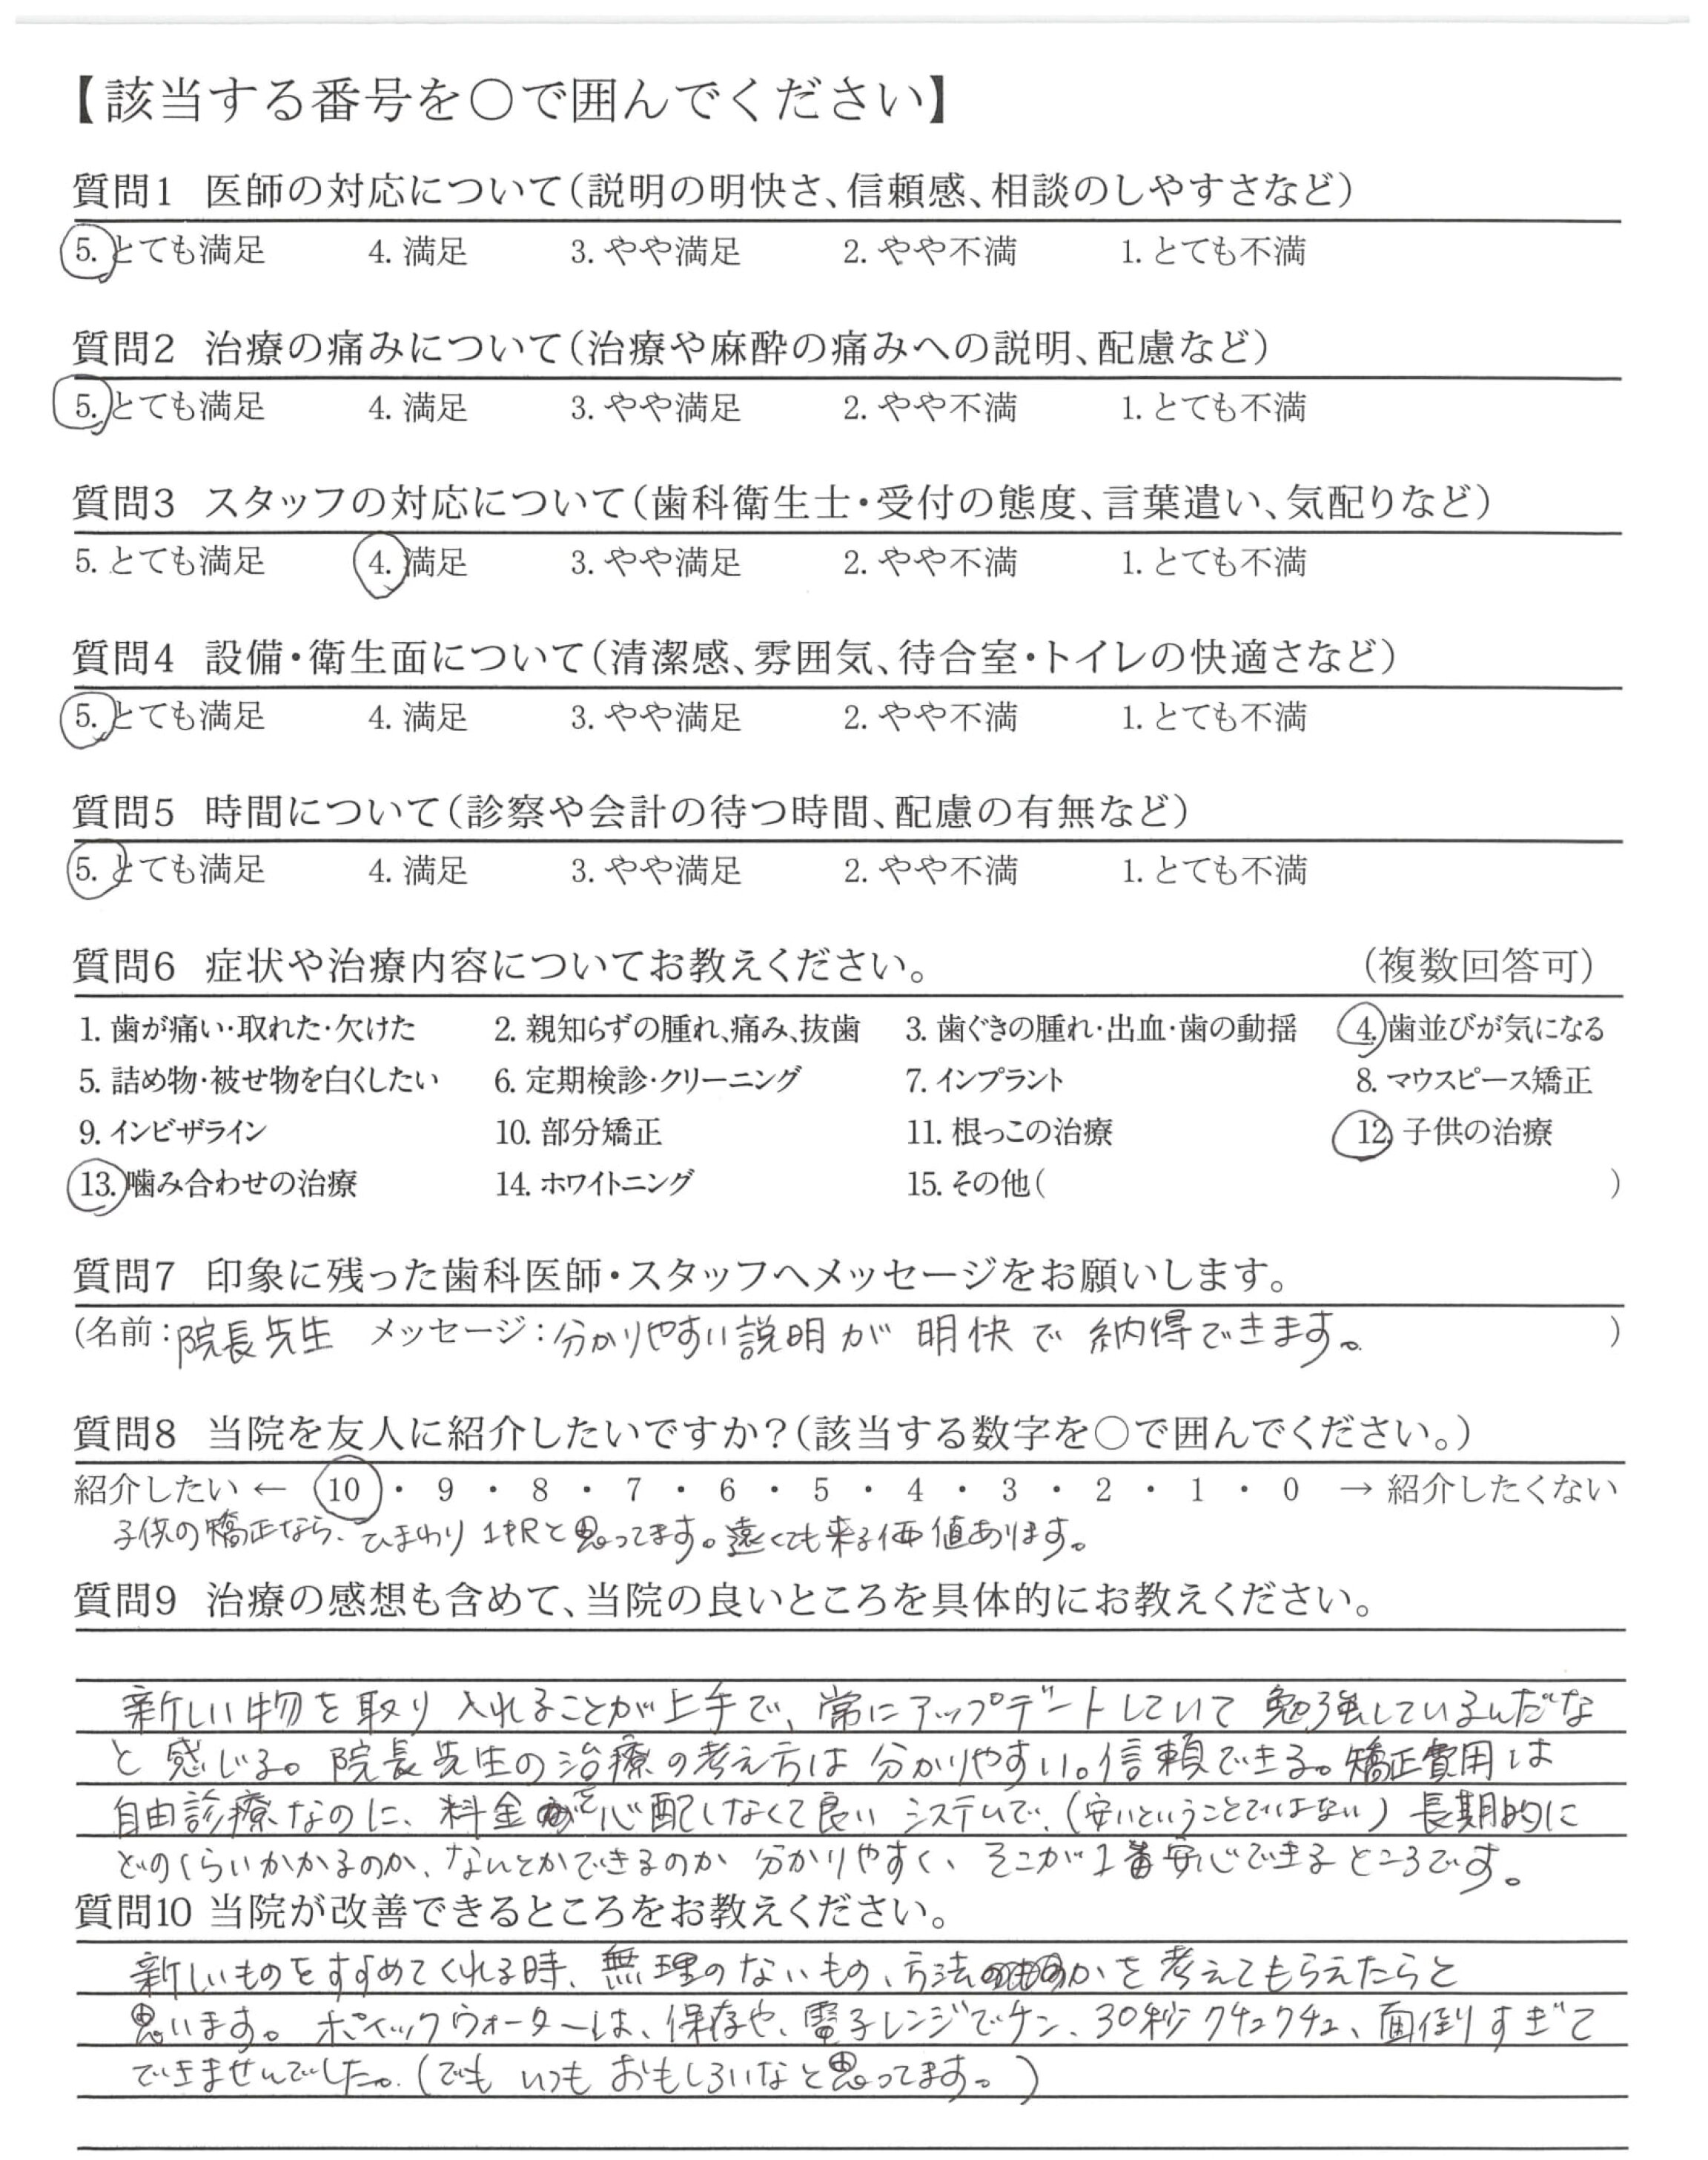 【該当する番号を〇で囲んでください】
質問1 医師の対応について(説明の明快さ、信頼感、相談のしやすさなど)
5. とても満足 4. 満足 3. やや満足 2. やや不満 1. とても不満
質問2 治療の痛みについて(治療や麻酔の痛みへの説明、配慮など)
5. とても満足 4. 満足 3. やや満足 2. やや不満 1. とても不満
質問3 スタッフの対応について(歯科衛生士・受付の態度、言葉遣い、気配りなど)
5. とても満足 4. 満足 3. やや満足 2. やや不満 1. とても不満
質問4 設備・衛生面について(清潔感、雰囲気、待合室・トイレの快適さなど)
5. とても満足 4. 満足 3. やや満足 2. やや不満 1. とても不満
質問5 時間について(診察や会計の待つ時間、配慮の有無など)
5. とても満足 4. 満足 3. やや満足 2. やや不満 1. とても不満
質問6 症状や治療内容についてお教えください。 (複数回答可)
1. 歯が痛い・取れた・欠けた 2. 親知らずの腫れ、痛み、抜歯 3. 歯ぐきの腫れ・出血・歯の動揺 4. 歯並びが気になる
5. 詰め物・被せ物を白くしたい 6. 定期検診・クリーニング 7. インプラント 8. マウスピース矯正
9. インビザライン 10. 部分矯正 11. 根っこの治療 12. 子供の治療
13. 噛み合わせの治療 14. ホワイトニング 15. その他( )
質問7 印象に残った歯科医師・スタッフへメッセージをお願いします。
(名前:院長先生 メッセージ:分かりやすい説明が明快で納得できます。 )
質問8 当院を友人に紹介したいですか?(該当する数字を〇で囲んでください。)
紹介したい ← 10 ・ 9 ・ 8 ・ 7 ・ 6 ・ 5 ・ 4 ・ 3 ・ 2 ・ 1 ・ 0 → 紹介したくない
子供の矯正なら、ひまわり1択と思ってます。遠くても来る価値あります。
質問9 治療の感想も含めて、当院の良いところを具体的にお教えください。
新しい物を取り入れることが上手で、常にアップデートしていて勉強しているんだな
と感じる。院長先生の治療の考え方は分かりやすい。信頼できる。矯正費用は
自由診療なのに、料金を心配しなくて良いシステムで、(安いということではない)長期的に
どのくらいかかるのか、なんとかできるのか分かりやすく、そこが1番安心できるところです。
質問10 当院が改善できるところをお教えください。
新しいものをすすめてくれる時、無理のないもの、方法かを考えてもらえたらと
思います。ポイックウォーターは、保存や、電子レンジでチン、30秒クチュクチュ、面倒すぎて
できませんでした。(でもいつもおもしろいなと思ってます。)